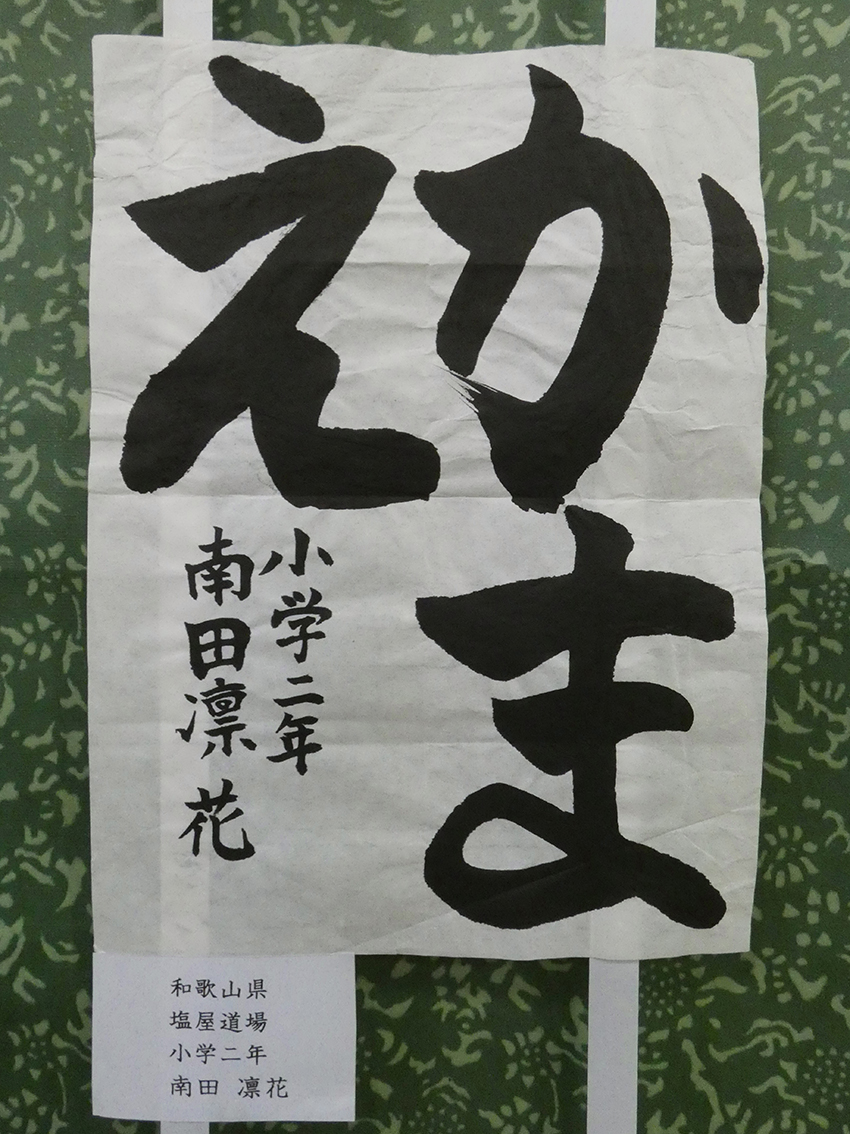 かま
え
小学二年
南田凛花
和歌山県
塩屋道場
小学二年
南田 凛花